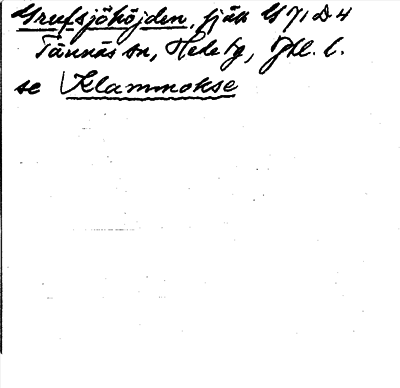 Grufsjöhöjden, fjäll G 71 D 4
Tännäs sn, Hede tg, Jtl. l.
se Klammokse